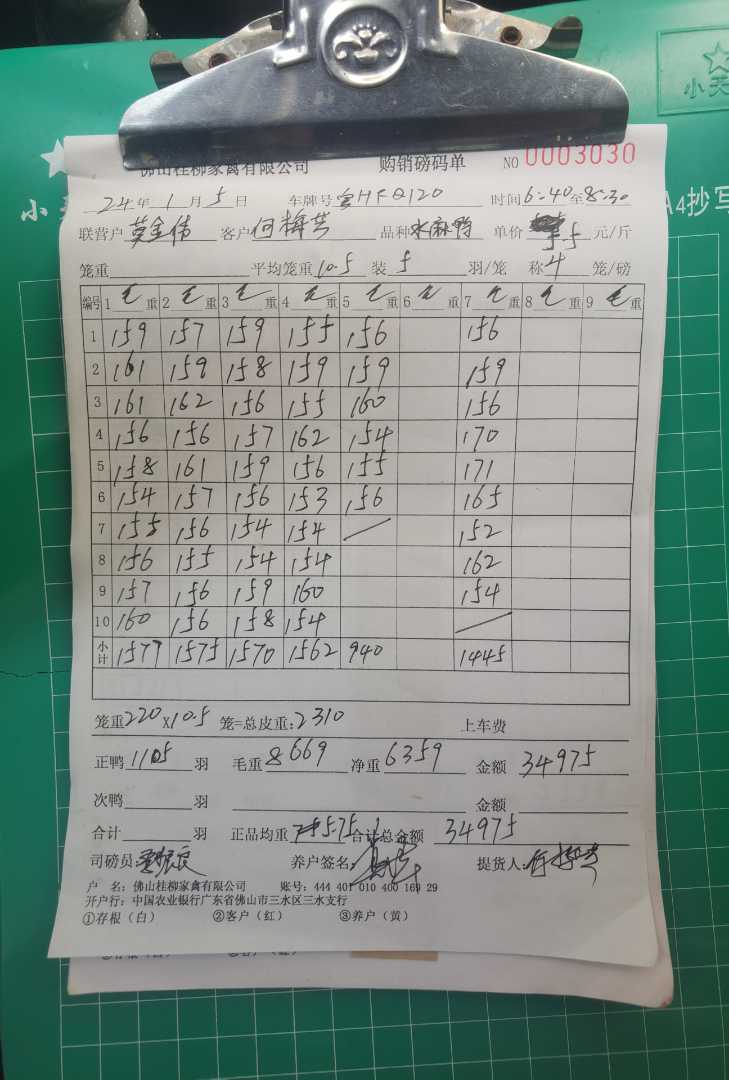 小天
佛山桂柳家禽有限公司 购销磅码单 NO 0003030
24年 1月 5日 车牌号 HFQ120 时间 6:40 至 8:30
联营户 莫金伟 客户 何梅芳 品种 水麻鸭 单价 5.5 元/斤
笼重 平均笼重 10.5 装 5 羽/笼 称 4 笼/磅
编号 1 毛 重 2 毛 重 3 毛 重 4 毛 重 5 毛 重 6 毛 重 7 毛 重 8 毛 重 9 毛 重
1 159 157 159 155 156 156
2 161 159 158 159 159 159
3 161 162 156 155 160 156
4 156 156 157 162 154 170
5 158 161 159 156 155 171
6 154 157 156 153 156 165
7 155 156 154 154 / 152
8 156 155 154 154 162
9 157 156 159 160 154
10 160 156 158 154 /
小计 1577 1575 1570 1562 940 1445
笼重 220 X 10.5 笼=总皮重: 2310 上车费
正鸭 1105 羽 毛重 8669 净重 6359 金额 34975
次鸭 羽 金额
合计 羽 正品均重 5.75 合计总金额 34975
司磅员: 养户签名: 提货人:
户 名: 佛山桂柳家禽有限公司 账号: 444 401 010 400 169 29
开户行: 中国农业银行广东省佛山市三水区三水支行
①存根（白） ②客户（红） ③养户（黄）
A4抄写